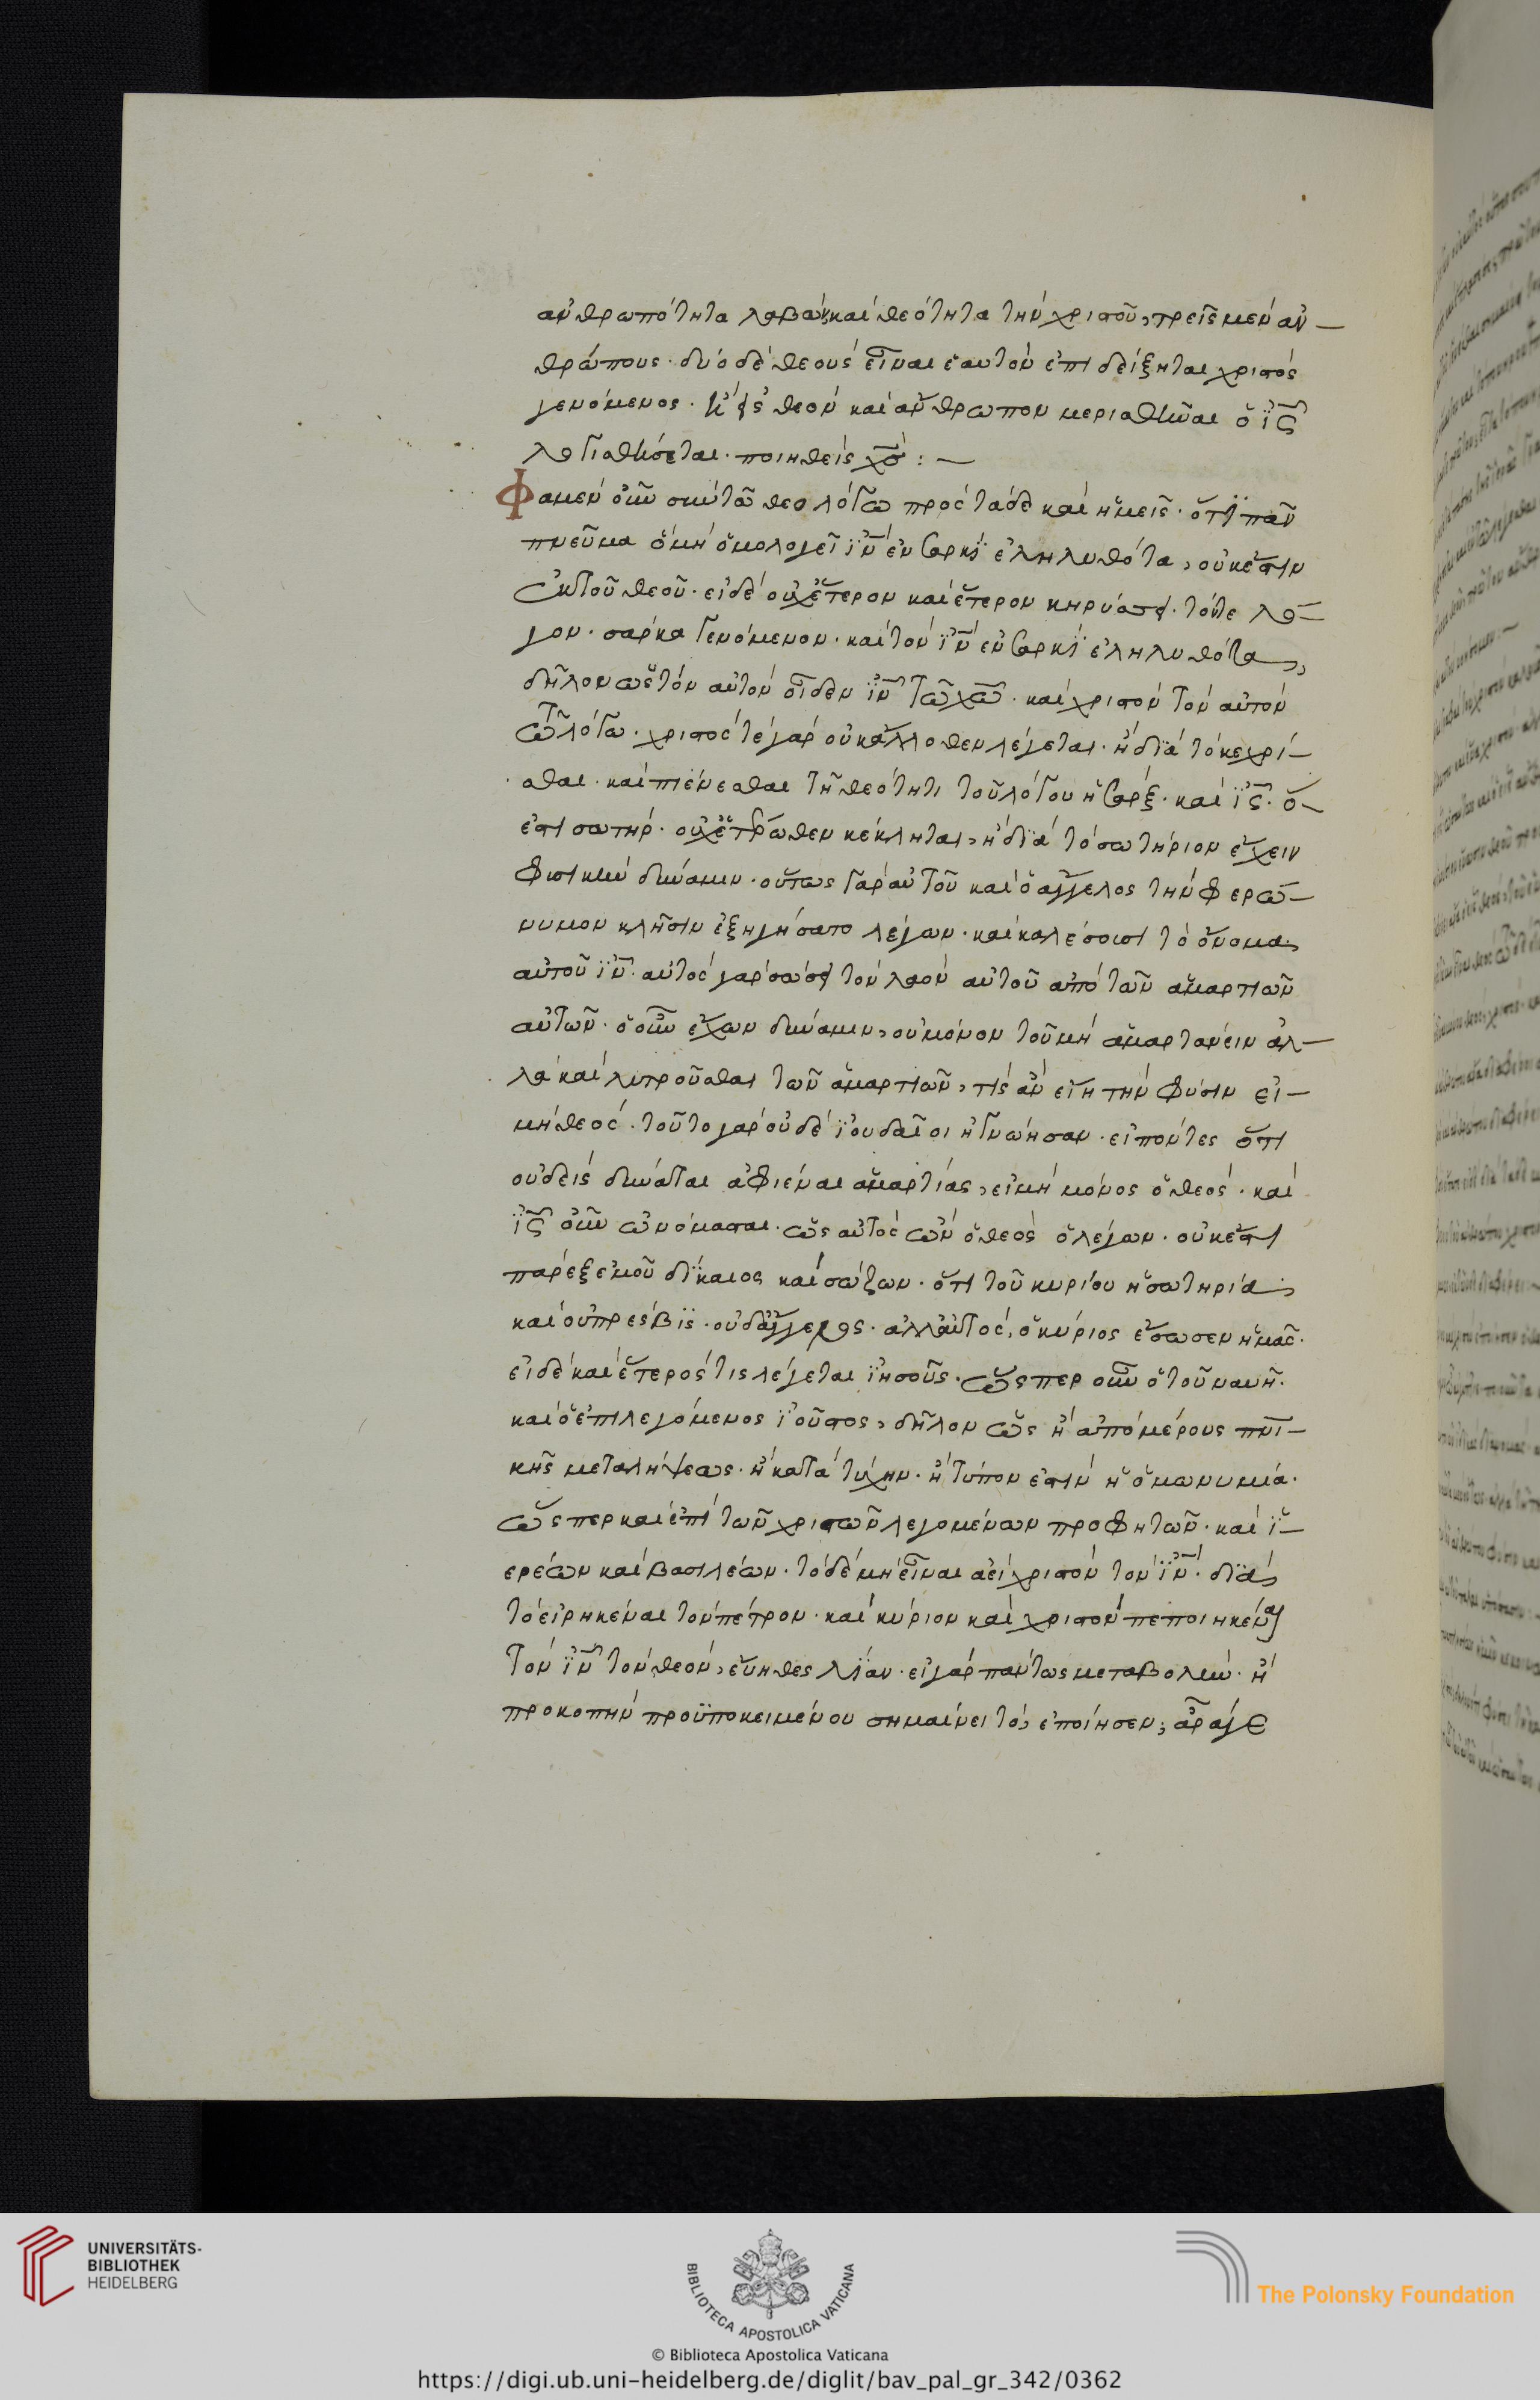 ανθρωπότητα λαβὼν καὶ θεότητα τὴν χριστοῦ, τρεῖς μὲν ἀν-
θρώπους. δύο δὲ θεοὺς εἶναι ἑαυτὸν ἐπιδείξηται χριστὸς
γενόμενος. ἢ εἰς θεὸν καὶ ἄνθρωπον μερισθῆναι ὁ ἰς
λογισθήσεται. ποιηθεὶς χσ :-
Φαμὲν οὖν σὺν τῶ θεολόγω πρὸς τάδε καὶ ἡμεῖς. ὅτι πᾶν
πνεῦμα ὃ μὴ ὁμολογεῖ ϊν ἐν σαρκὶ ἐληλυθότα, οὐκ ἔστιν
ἐκ τοῦ θεοῦ. εἰ δὲ οὐχ ἕτερον καὶ ἕτερον κηρύσσει. τόν τε λό-
γον. σάρκα γενόμενον. καὶ τὸν ϊν ἐν σαρκὶ ἐληλυθότα,
δῆλον ὡς τὸν αὐτὸν οἶδεν ϊν τῶ χω. καὶ χριστὸν τὸν αὐτὸν
τῶ λόγω. χριστός τε γὰρ οὐκ ἄλλοθεν λέγεται. ἢ διὰ τὸ κεχρί-
σθαι. καὶ πιένεσθαι τῆ θεότητι τοῦ λόγου ἡ σάρξ. καὶ ϊς. ὅ
ἐστι σωτήρ. οὐχ ἑτέρωθεν κέκληται, ἢ διὰ τὸ σωτήριον ἔχειν
φυσικὴν δύναμιν. οὕτως γὰρ αὐτοῦ καὶ ὁ ἄγγελος τὴν φερώ-
νυμον κλῆσιν ἐξηγήσατο λέγων. καὶ καλέσουσι τὸ ὄνομα
αὐτοῦ ϊν. αὐτὸς γὰρ σώσει τὸν λαὸν αὐτοῦ ἀπὸ τῶν ἁμαρτιῶν
αὐτῶν. ὁ οὖν ἔχων δύναμιν, οὐ μόνον τοῦ μὴ ἁμαρτάνειν ἀλ-
λὰ καὶ λυτροῦσθαι τῶν ἁμαρτιῶν, τίς ἂν εἴη τὴν φύσιν εἰ
μὴ θεός. τοῦτο γὰρ οὐδὲ ϊουδαῖοι ἠγνώησαν. εἰπόντες ὅτι
οὐδεὶς δύναται ἀφιέναι ἁμαρτίας, εἰ μὴ μόνος ὁ θεός. καὶ
ϊς οὖν ὠνόμασται. ὡς αὐτὸς ὢν ὁ θεὸς ὁ λέγων. οὐκ ἔστι
παρὲξ ἐμοῦ δίκαιος καὶ σώζων. ὅτι τοῦ κυρίου ἡ σωτηρία,
καὶ οὐ πρέσβϊς. οὐδ ἄγγελος. ἀλλ αὐτός, ὁ κύριος ἔσωσεν ἡμᾶς.
εἰ δὲ καὶ ἕτερός τις λέγεται ϊησοῦς. ὥσπερ οὖν ὁ τοῦ ναυῆ.
καὶ ὁ ἐπιλεγόμενος ϊοῦστος, δῆλον ὡς ἢ ἀπὸ μέρους πνϊ-
κῆς μεταλήψεως. ἢ κατὰ τύχην. ἢ τύπον ἐστὶν ἡ ὁμωνυμία.
ὥσπερ καὶ ἐπὶ τῶν χριστῶν λεγομένων προφητῶν. καὶ ϊ-
ερέων καὶ βασιλέων. τὸ δὲ μὴ εἶναι ἀεὶ χριστὸν τὸν ϊν. διὰ
τὸ εἰρηκέναι τὸν πέτρον. καὶ κύριον καὶ χριστὸν πεποιηκέναι
τὸν ϊν τὸν θεόν, εὔηθες λίαν. εἰ γὰρ πάντως μεταβολὴν. ἢ
προκοπὴν προϋποκειμένου σημαίνει τό, ἐποίησεν; ἆρά γε
UNIVERSITÄTS-
BIBLIOTHEK
HEIDELBERG
BIBLIOTECA APOSTOLICA VATICANA
The Polonsky Foundation
© Biblioteca Apostolica Vaticana
https://digi.ub.uni-heidelberg.de/diglit/bav_pal_gr_342/0362